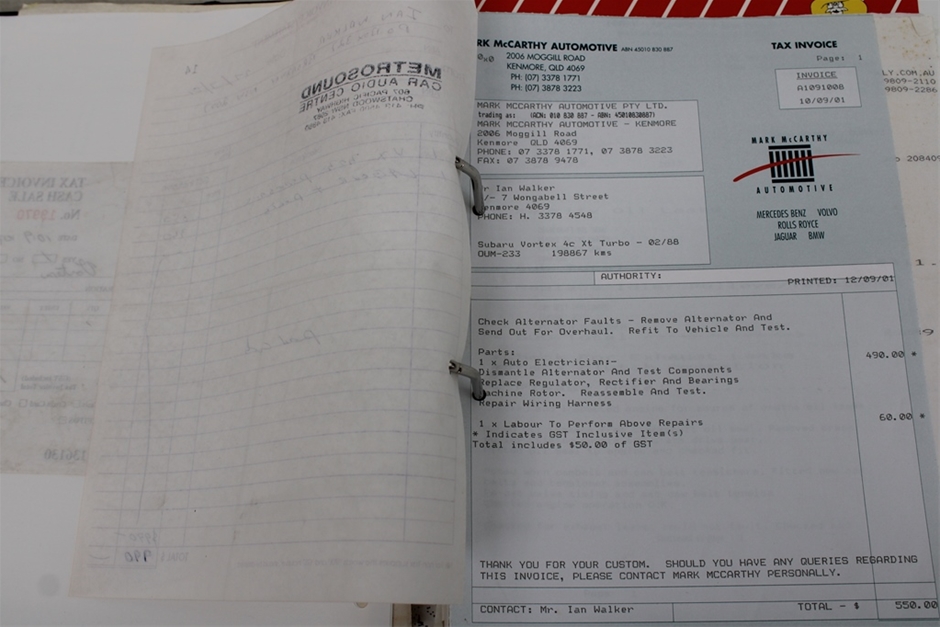 METROSOUND
CAR AUDIO CENTRE
607 PACIFIC HIGHWAY
CHATSWOOD NSW 2067
14
TAX INVOICE
CASH SALE
No. 19970
136130
990
RK MCCARTHY AUTOMOTIVE ABN 45010 830 887
2006 MOGGILL ROAD
KENMORE, QLD 4069
PH: (07) 3378 1771
PH: (07) 3878 3223
TAX INVOICE
Page: 1
INVOICE
A1091008
10/09/01
MARK MCCARTHY AUTOMOTIVE PTY LTD.
trading as: (ACN: 010 830 887 - ABN: 45010830887)
MARK MCCARTHY AUTOMOTIVE - KENMORE
2006 Moggill Road
Kenmore QLD 4069
PHONE: 07 3378 1771, 07 3878 3223
FAX: 07 3878 9478
MARK MCCARTHY
AUTOMOTIVE
MERCEDES BENZ VOLVO
ROLLS ROYCE
JAGUAR BMW
r Ian Walker
/- 7 Wongabell Street
enmore 4069
PHONE: H. 3378 4548
Subaru Vortex 4c Xt Turbo - 02/88
OUM-233 198867 kms
AUTHORITY:
PRINTED: 12/09/01
Check Alternator Faults - Remove Alternator And
Send Out For Overhaul. Refit To Vehicle And Test.
Parts:
1 x Auto Electrician:- 490.00 *
Dismantle Alternator And Test Components
Replace Regulator, Rectifier And Bearings
Machine Rotor. Reassemble And Test.
Repair Wiring Harness
1 x Labour To Perform Above Repairs 60.00 *
* Indicates GST Inclusive Item(s)
Total includes $50.00 of GST
THANK YOU FOR YOUR CUSTOM. SHOULD YOU HAVE ANY QUERIES REGARDING
THIS INVOICE, PLEASE CONTACT MARK MCCARTHY PERSONALLY.
CONTACT: Mr. Ian Walker
TOTAL - $ 550.00
LY.COM.AU
9809-2110
9809-2286